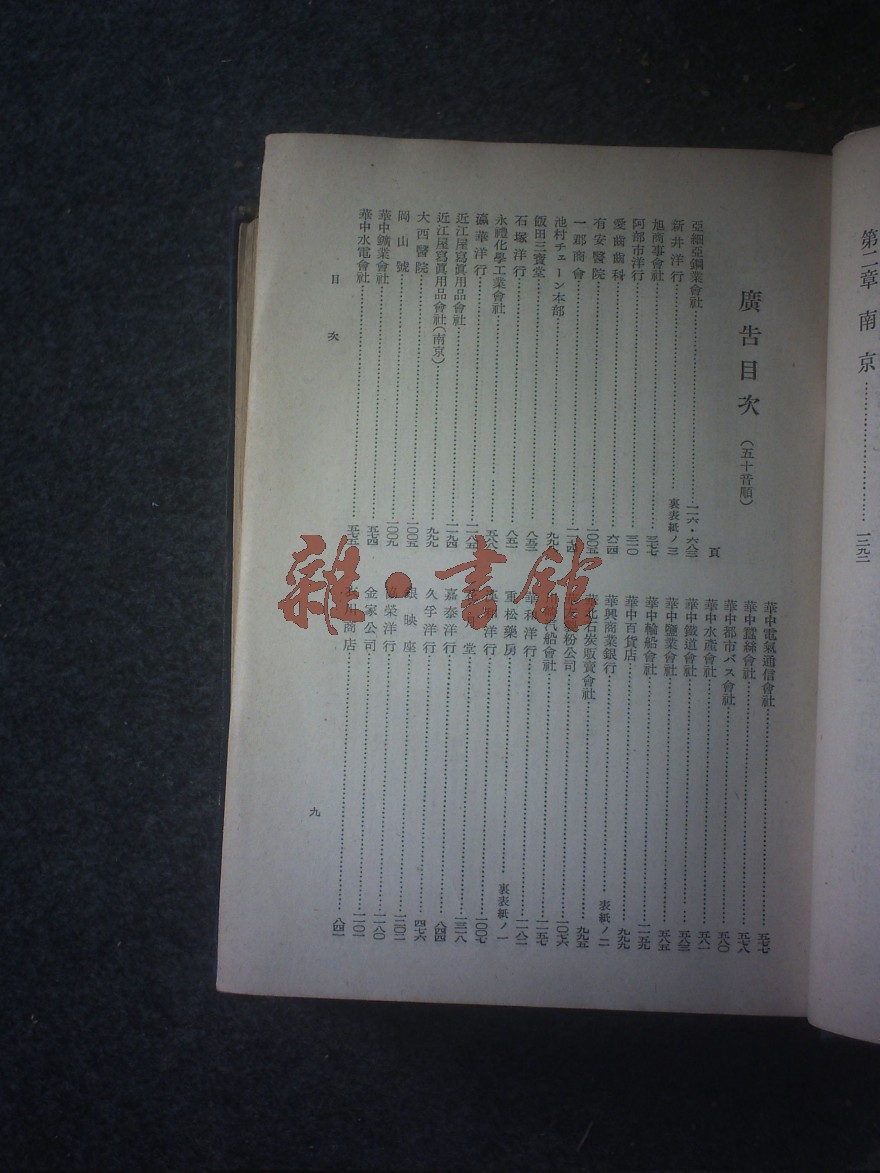 第二章 南京……一三九二
廣告目次（五十音順）
頁
亞細亞鋼業會社……一一六・六八三
新井洋行……裏表紙ノ三
旭商事會社……三七七
阿部市洋行……三二〇
愛齒齒科……六二四
有安醫院……一〇〇五
一郡商會……一一二四
池村チェーン本部……九九八
飯田三寶堂……八五三
石塚洋行……八五一
永禮化學工業會社……五八八
瀛華洋行……一一八五
近江屋寫眞用品會社……一一九四
近江屋寫眞用品會社（南京）……九九九
大西醫院……一〇〇五
岡山號……一〇〇九
華中鑛業會社……五七四
華中水電會社……五七五
華中電氣通信會社……五七七
華中蠶絲會社……五七八
華中都市バス會社……五八〇
華中水產會社……五八一
華中鐵道會社……五八三
華中鹽業會社……五八五
華中輪船會社……一一五九
華中百貨店……九九九
華興商業銀行……表紙ノ二
華北石炭販賣會社……九九五
粉公司……一〇七六
汽船會社……一一五七
華和洋行……一一八二
重松藥房……裏表紙ノ一
洋行……一〇〇七
堂……一三一八
嘉泰洋行……八四四
久孚洋行……四七六
銀映座……一三〇二
協榮洋行……一一八〇
金家公司……一一〇一
川商店……八四一
目次
九
雜・書館